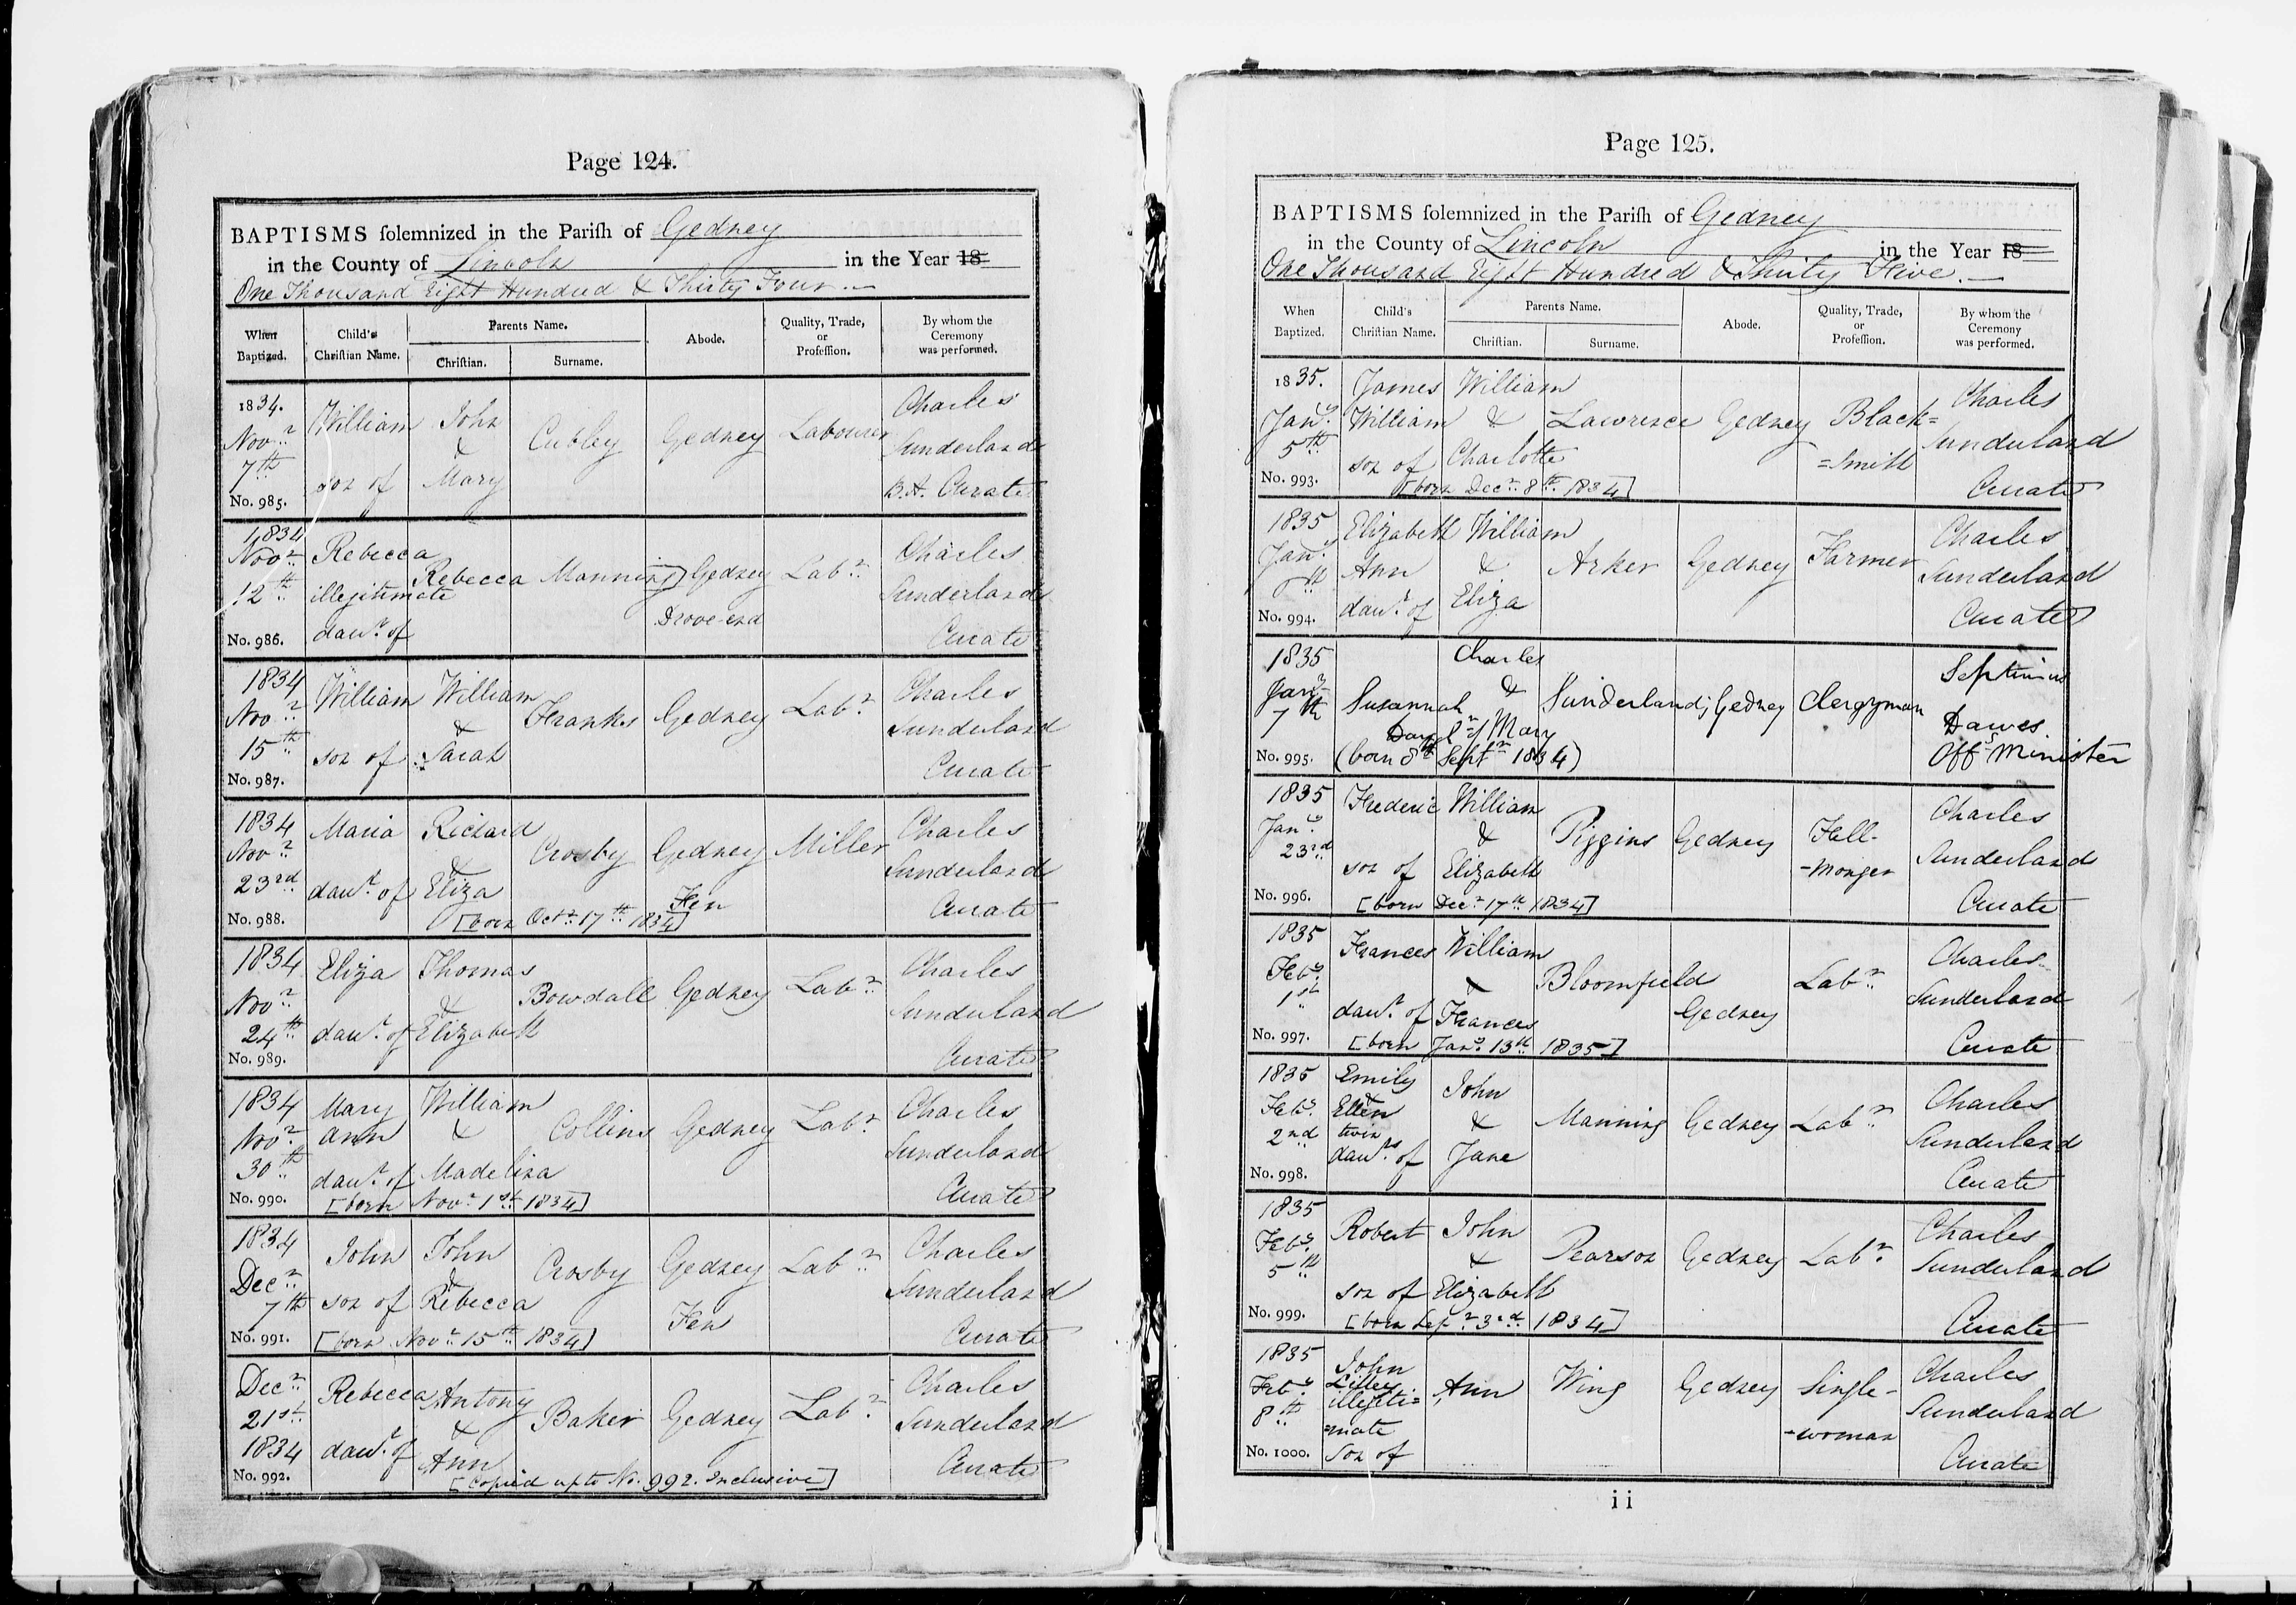 Page 124.
BAPTISMS solemnized in the Parish of Gedney
in the County of Lincoln in the Year 18
One Thousand Eight Hundred & Thirty Four.—
When Baptized. Child's Christian Name. Parents Name. Christian. Surname. Abode. Quality, Trade, or Profession. By whom the Ceremony was performed.
1834. Novr 7th No. 985. William son of John & Mary Cubley Gedney Labourer Charles Sunderland B.A. Curate
1834 Novr 12th No. 986. Rebecca illegitimate daur of Rebecca Manning Gedney Drove-end Labr Charles Sunderland Curate
1834 Novr 15th No. 987. William son of William & Sarah Franks Gedney Labr Charles Sunderland Curate
1834 Novr 23rd No. 988. Maria daur of Richard & Eliza Crosby Gedney Fen Miller Charles Sunderland Curate
[born Octr 17th 1834]
1834 Novr 24th No. 989. Eliza daur of Thomas & Elizabeth Bowdall Gedney Labr Charles Sunderland Curate
1834 Novr 30th No. 990. Mary Ann daur of William & Madeliza Collins Gedney Labr Charles Sunderland Curate
[born Novr 1st 1834]
1834 Decr 7th No. 991. John son of John & Rebecca Crosby Gedney Fen Labr Charles Sunderland Curate
[born Novr 15th 1834]
Decr 21st 1834 No. 992. Rebecca daur of Antony & Ann Baker Gedney Labr Charles Sunderland Curate
[Copied up to No. 992. Inclusive]
Page 125.
BAPTISMS solemnized in the Parish of Gedney
in the County of Lincoln in the Year 18
One Thousand Eight Hundred & Thirty Five.—
When Baptized. Child's Christian Name. Parents Name. Christian. Surname. Abode. Quality, Trade, or Profession. By whom the Ceremony was performed.
1835. Jany 5th No. 993. James William son of William & Charlotte Lawrence Gedney Black==smith Charles Sunderland Curate
[born Decr 8th 1834]
1835 Jany No. 994. Elizabeth Ann daur of William & Eliza Arker Gedney Farmer Charles Sunderland Curate
1835 Jany 7th No. 995. Susannah Daur of Charles & Mary Sunderland; Gedney Clergyman Septimus Dawes Offg Minister
(born 8th Septr 1834)
1835 Jany 23rd No. 996. Frederic son of William & Elizabeth Piggins Gedney Fell--monger Charles Sunderland Curate
[born Decr 17th 1834]
1835 Feby 1st No. 997. Frances daur of William & Frances Bloomfield Gedney Labr Charles Sunderland Curate
[born Jany 13th 1835]
1835 Feby 2nd No. 998. Emily & Ellen twin daurs of John & Jane Manning Gedney Labr Charles Sunderland Curate
1835 Feby 5th No. 999. Robert son of John & Elizabeth Pearson Gedney Labr Charles Sunderland Curate
[born Sepr 3rd 1834]
1835 Feby 8th No. 1000. John Lilley illegiti==mate son of Ann Wing Gedney Single--woman Charles Sunderland Curate
ii